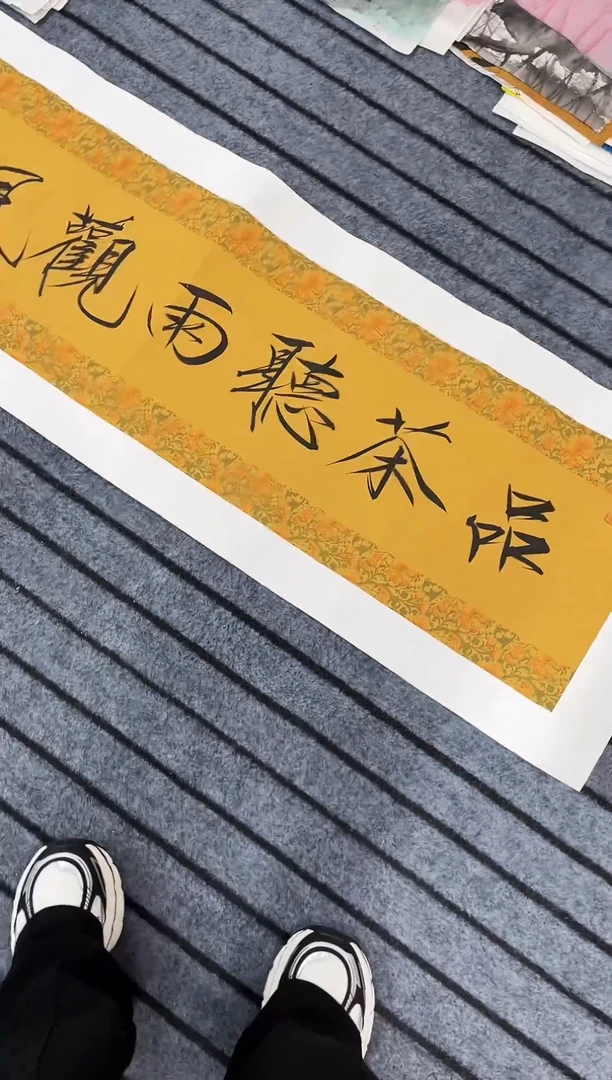 品茶聽雨觀